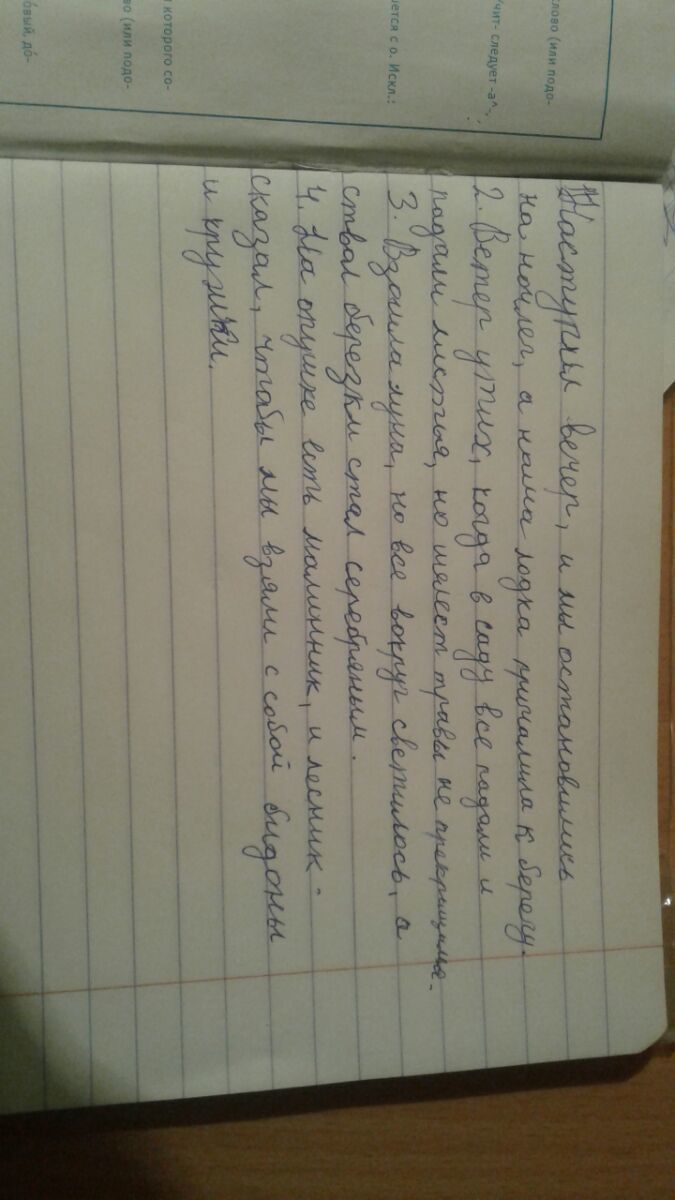 слово (или подо-
учит- следует -а^,
:
ается с о. Искл.:
и которого со-
во (или подо-
о́вый, до́-
Наступил вечер, и мы остановились
на ночлег, а наша лодка причалила к берегу.
2. Ветер утих, когда в саду все падали и
падали листья, но шелест травы не прекращался.
3. Взошла луна, но все вокруг светилось, а
ствол березки стал серебряным.
4. На опушке есть малинник, и лесник -
сказал, чтобы мы взяли с собой бидоны
и кружки.